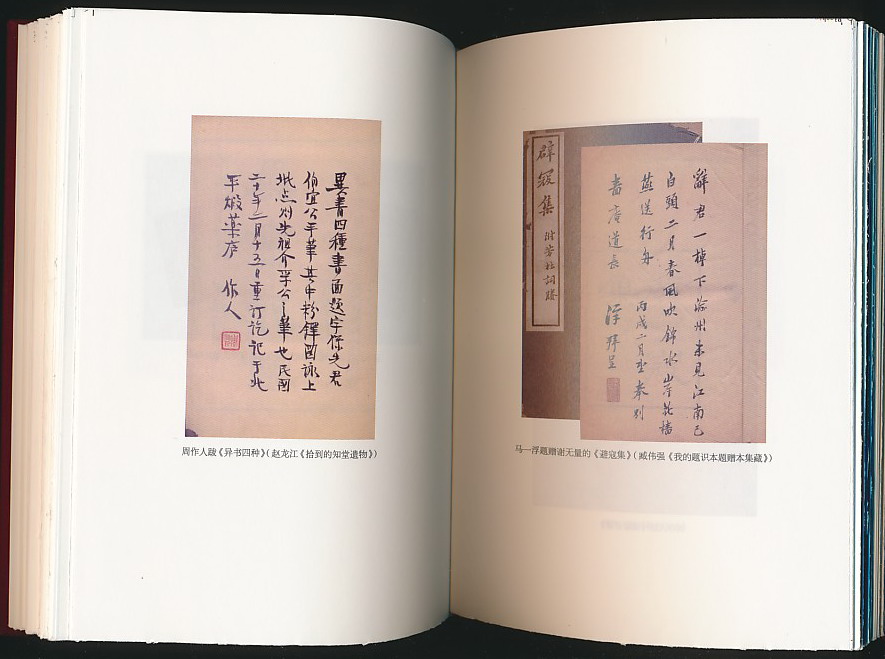 異書四種書面題字係先君
伯宜公手筆其中粉鐸圖詠上
批点則先祖介孚公之筆也民國
二十年二月十五日重订訖記于北
平煅藥庐 作人
周作人跋《异书四种》(赵龙江《拾到的知堂遗物》)
辟寇集 附芳杜詞賸
辭君一棹下渝州未見江南已
白頭二月春風吹錦水岸花檣
燕送行舟 丙戌二月望奉別
嗇庵道長 浮拜呈
马一浮题赠谢无量的《避寇集》(臧伟强《我的题识本题赠本集藏》)